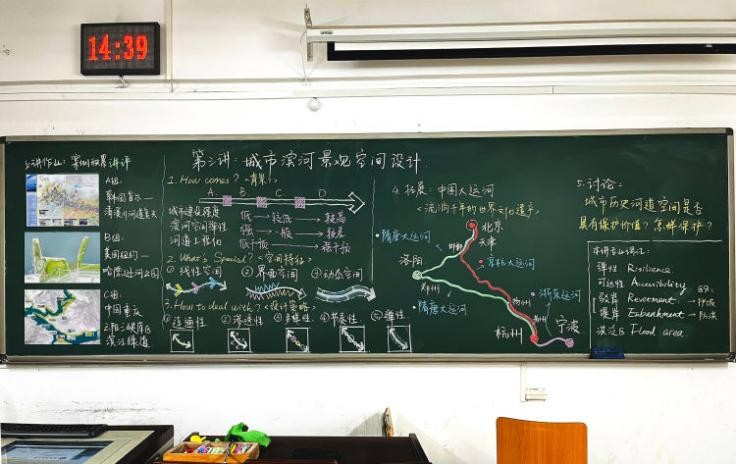 14:39
第三讲:城市滨河景观空间设计
A组:
韩国首尔—
清溪川河道复兴
B组:
美国纽约—
哈德逊河公园
C组:
中国重庆
1. How comes? <背景>
A B C D
城市建设强度
滨河空间弹性
河道工程化
低 → 较低 → 较高
2. What's Special? <空间特征>
①线性空间 ②界面空间 ③动态空间
3. How to deal with? <设计策略>
①连通性 ②渗透性 ③多样性 ④节奏性 ⑤弹性
4. 拓展:中国大运河
<流淌千年的世界文化遗产>
北京
天津
隋唐大运河
京杭大运河
洛阳
郑州
隋唐大运河
扬州
浙东运河
杭州
宁波
5. 讨论:
城市历史河道空间是否
具有保护价值?怎样保护?
本讲专业词汇:
弹性 Risilience
可达性 Accessibility
驳岸 Revetment → 护坡
堤岸 Enbankment → 防洪
漫滩区 Flood area